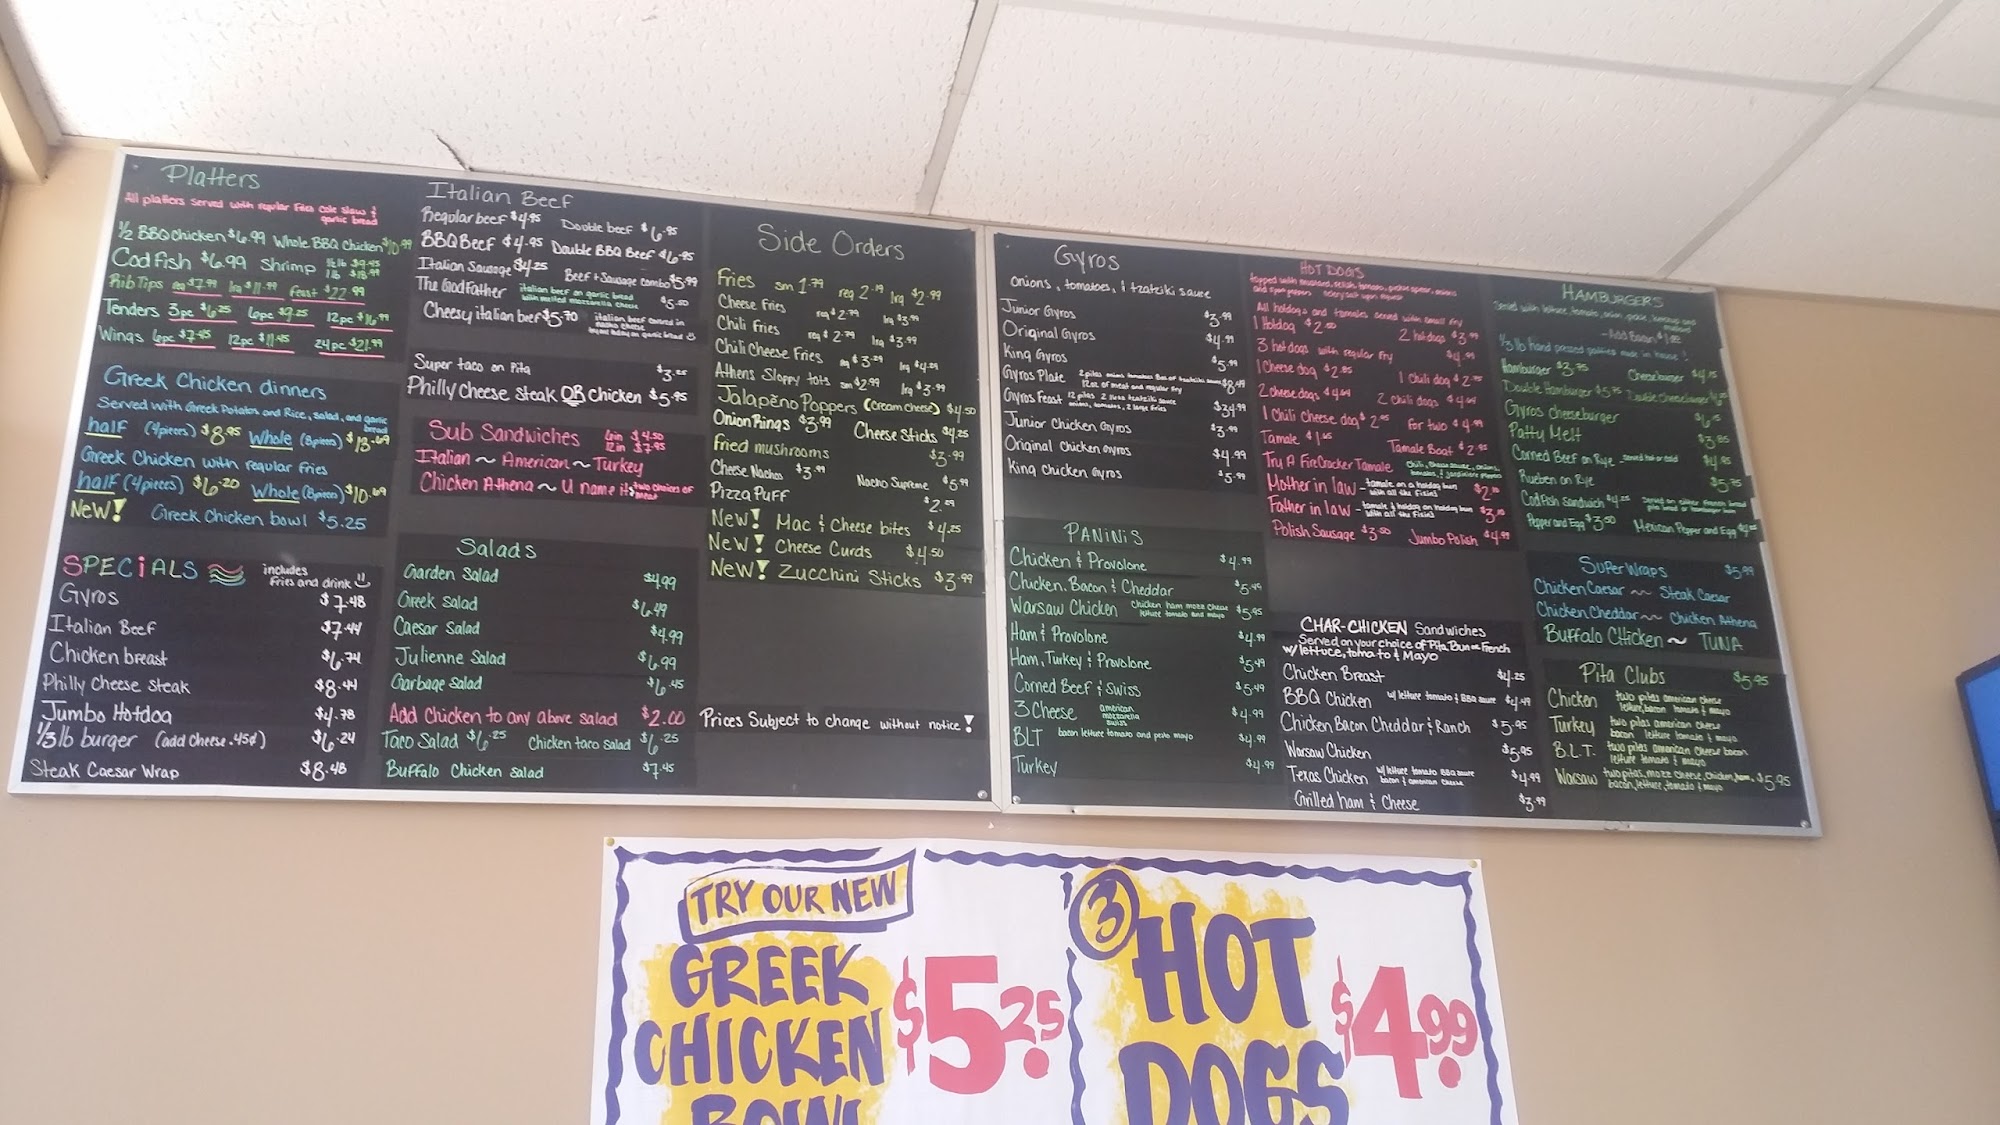 Platters
All platters served with regular Fries Cole Slaw &
garlic bread
1/2 BBQ Chicken $6.99 Whole BBQ Chicken $10.99
Cod Fish $6.99 Shrimp 1/2 lb $9.95
1 lb $18.99
Rib Tips reg $7.99 lrg $11.99 feast $22.99
Tenders 3pc $6.25 6pc $9.25 12pc $16.99
Wings 6pc $7.45 12pc $11.45 24pc $21.99
Greek Chicken dinners
Served with Greek Potatoes and Rice, salad, and garlic
bread
half (4pieces) $8.95 Whole (8pieces) $13.69
Greek Chicken with regular fries
half (4pieces) $6.20 Whole (8pieces) $10.69
New! Greek Chicken bowl $5.25
SPECiALS includes
fries and drink
Gyros $7.48
Italian Beef $7.44
Chicken breast $6.74
Philly Cheese Steak $8.44
Jumbo Hotdog $4.78
1/3 lb burger (add Cheese .45¢) $6.24
Steak Caesar Wrap $8.48
Italian Beef
Regular beef $4.95 Double beef $6.95
BBQ Beef $4.95 Double BBQ Beef $6.95
Italian Sausage $4.25 Beef + Sausage combo $5.99
The GodFather italian beef on garlic bread
with melted mozzarella cheese $5.50
Cheesy italian beef $5.70 italian beef covered in
nacho cheese
on garlic bread
Super taco on Pita $3.25
Philly Cheese Steak OR Chicken $5.95
Sub Sandwiches 6in $4.50
12in $7.95
Italian ~ American ~ Turkey
Chicken Athena ~ U name it two choices of
meat
Salads
Garden Salad $4.99
Greek Salad $6.49
Caesar Salad $4.99
Julienne Salad $6.99
Garbage Salad $6.45
Add Chicken to any above salad $2.00
Taco Salad $6.25 Chicken taco salad $6.25
Buffalo Chicken Salad $7.45
Side Orders
Fries sm 1.79 reg 2.19 lrg $2.99
Cheese Fries reg $2.79 lrg $3.99
Chili Fries reg $2.79 lrg $3.99
Chili Cheese Fries reg $3.29 lrg $4.09
Athens Sloppy tots sm $2.99 lrg $3.99
Jalapeño Poppers (cream cheese) $4.50
Onion Rings $3.99 Cheese Sticks $4.25
Fried mushrooms $3.99
Cheese Nachos $3.99 Nacho Supreme $5.99
Pizza Puff $2.89
New! Mac & Cheese bites $4.25
New! Cheese Curds $4.50
NEW! Zucchini Sticks $3.99
Prices Subject to change without notice!
Gyros
Onions, tomatoes, & tzatziki sauce
Junior Gyros $3.99
Original Gyros $4.99
King Gyros $5.99
Gyros Plate 2 pitas onions tomatoes 8oz of tzatziki sauce
12oz of meat and regular fry $8.49
Gyros Feast 12 pitas 2 tzatziki sauce
onions, tomatoes, 2 large fries $34.99
Junior Chicken Gyros $3.99
Original Chicken Gyros $4.99
King Chicken Gyros $5.99
PANiNiS
Chicken & Provolone $4.99
Chicken, Bacon & Cheddar $5.49
Warsaw Chicken Chicken ham mozz cheese
lettuce tomato and mayo $5.95
Ham & Provolone $4.99
Ham, Turkey & Provolone $5.49
Corned Beef & Swiss $5.49
3 Cheese american
mozzarella
swiss $4.99
BLT bacon lettuce tomato and pesto mayo $4.99
Turkey $4.99
HOT DOGS
topped with mustard, relish, tomato, pickle spear, onions
and sport peppers celery salt upon request
All hotdogs and tamales served with small fry
1 Hotdog $2.50 2 hotdogs $3.99
3 hotdogs with regular fry $4.99
1 Cheese dog $2.85 1 Chili dog $2.75
2 cheese dogs $4.69 2 chili dogs $4.69
1 Chili Cheese dog $2.95 for two $4.99
Tamale $1.65 Tamale Boat $2.95
Try A FireCracker Tamale chili, cheese sauce, onions,
tomatoes, & jardiniere peppers
Mother in law - tamale on a hotdog bun
with all the fixins
Father in law - tamale & hotdog on hotdog bun
with all the fixins
Polish Sausage $3.50 Jumbo Polish $4.99
CHAR-CHICKEN Sandwiches
Served on your choice of Pita, Bun or French
w/ lettuce, tomato & Mayo
Chicken Breast $4.25
BBQ Chicken w/ lettuce tomato & BBQ sauce $4.49
Chicken Bacon Cheddar & Ranch $5.95
Warsaw Chicken $5.95
Texas Chicken w/ lettuce tomato BBQ sauce
bacon & american cheese $4.99
Grilled ham & Cheese $3.99
HAMBURGERS
Served with lettuce, tomato, onion, pickle, ketchup and
mustard
- Add Bacon
1/3 lb hand pressed patties made in house!
Hamburger $3.75 Cheeseburger $4.15
Double Hamburger $5.75 Double Cheeseburger
Gyros cheeseburger
Patty Melt $3.85
Corned Beef on Rye - served hot or cold $4.95
Rueben on Rye $5.75
Codfish Sandwich
Pepper and Egg $3.50 Mexican Pepper and Egg
Super Wraps $5.99
Chicken Caesar ~~ Steak Caesar
Chicken Cheddar ~~ Chicken Athena
Buffalo Chicken ~ TUNA
Pita Clubs $5.95
Chicken two pitas american cheese
lettuce, bacon tomato & mayo
Turkey two pitas american cheese
bacon lettuce tomato & mayo
B.L.T. two pitas american cheese bacon
lettuce tomato & mayo
Warsaw two pitas, mozz cheese, chicken, ham,
bacon, lettuce, tomato & mayo $5.95
TRY OUR NEW
GREEK
CHICKEN
BOWL
$5.25
3 HOT
DOGS
$4.99